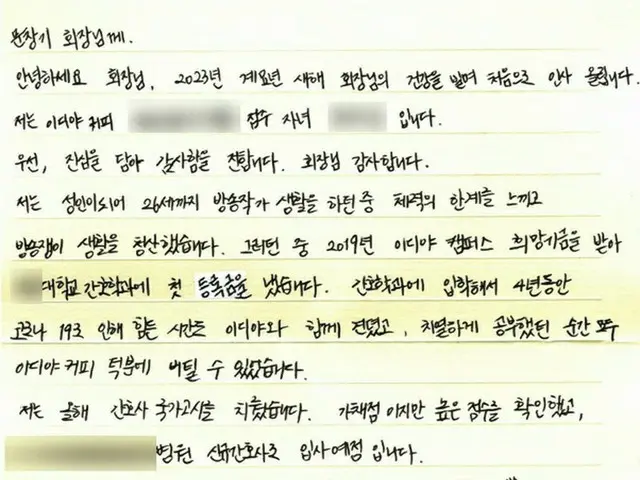 문창기 회장님께.
안녕하세요 회장님, 2023년 계묘년 새해 회장님의 건강을 빌며 처음으로 인사 올립니다.
저는 이디야 커피 점주 자녀 입니다.
우선, 진심을 담아 감사함을 전합니다. 회장님 감사합니다.
저는 성인이되어 26세까지 방송작가 생활을 하던 중 체력의 한계를 느끼고
방송쟁이 생활을 청산했습니다. 그러던 중 2019년 이디야 캠퍼스 희망기금을 받아
대학교 간호학과에 첫 등록금을 냈습니다. 간호학과에 입학해서 4년동안
코로나 19로 인해 힘든 시간도 이디야와 함께 견뎠고, 치열하게 공부했던 순간 모두
이디야 커피 덕분에 버틸 수 있었습니다.
저는 올해 간호사 국가고시를 치뤘습니다. 가채점 이지만 높은 점수를 확인했고,
병원 신규간호사로 입사예정 입니다.